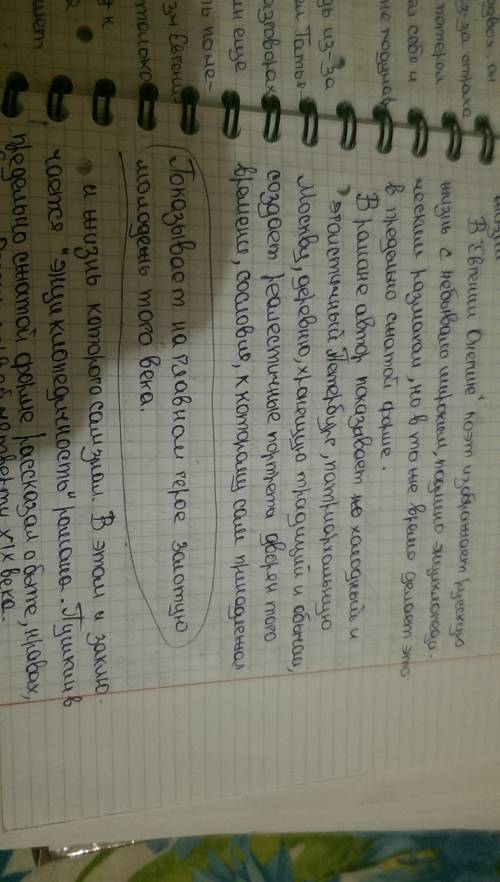 В "Евгении Онегине" поэт изображает русскую
жизнь с небывало широким, подлино энциклопеди-
ческим размахом, но в то же время делает это
в предельно сжатой форме.
В романе автор показывает холодный и
эгоистичный Петербург, патриархальную
Москву, деревню, хронещую традиций и обычаи,
создает реалестичные портрета дворян того
времени, сословия, к которому сам принадлежал
Показывает на главном герое золотую
молодежь того века.
и жизнь которого сам знал. В этом и заклю-
чается "энциклопедичность" романа. Пушкин в
предельно сжатой форме рассказал о быте, нравах,
XIX века.
дворян, он
из-за отказа
потерял
себе и
не подумав
дь из-за
Татья-
разговорах
еще
ть поме-
Евгени
только
к